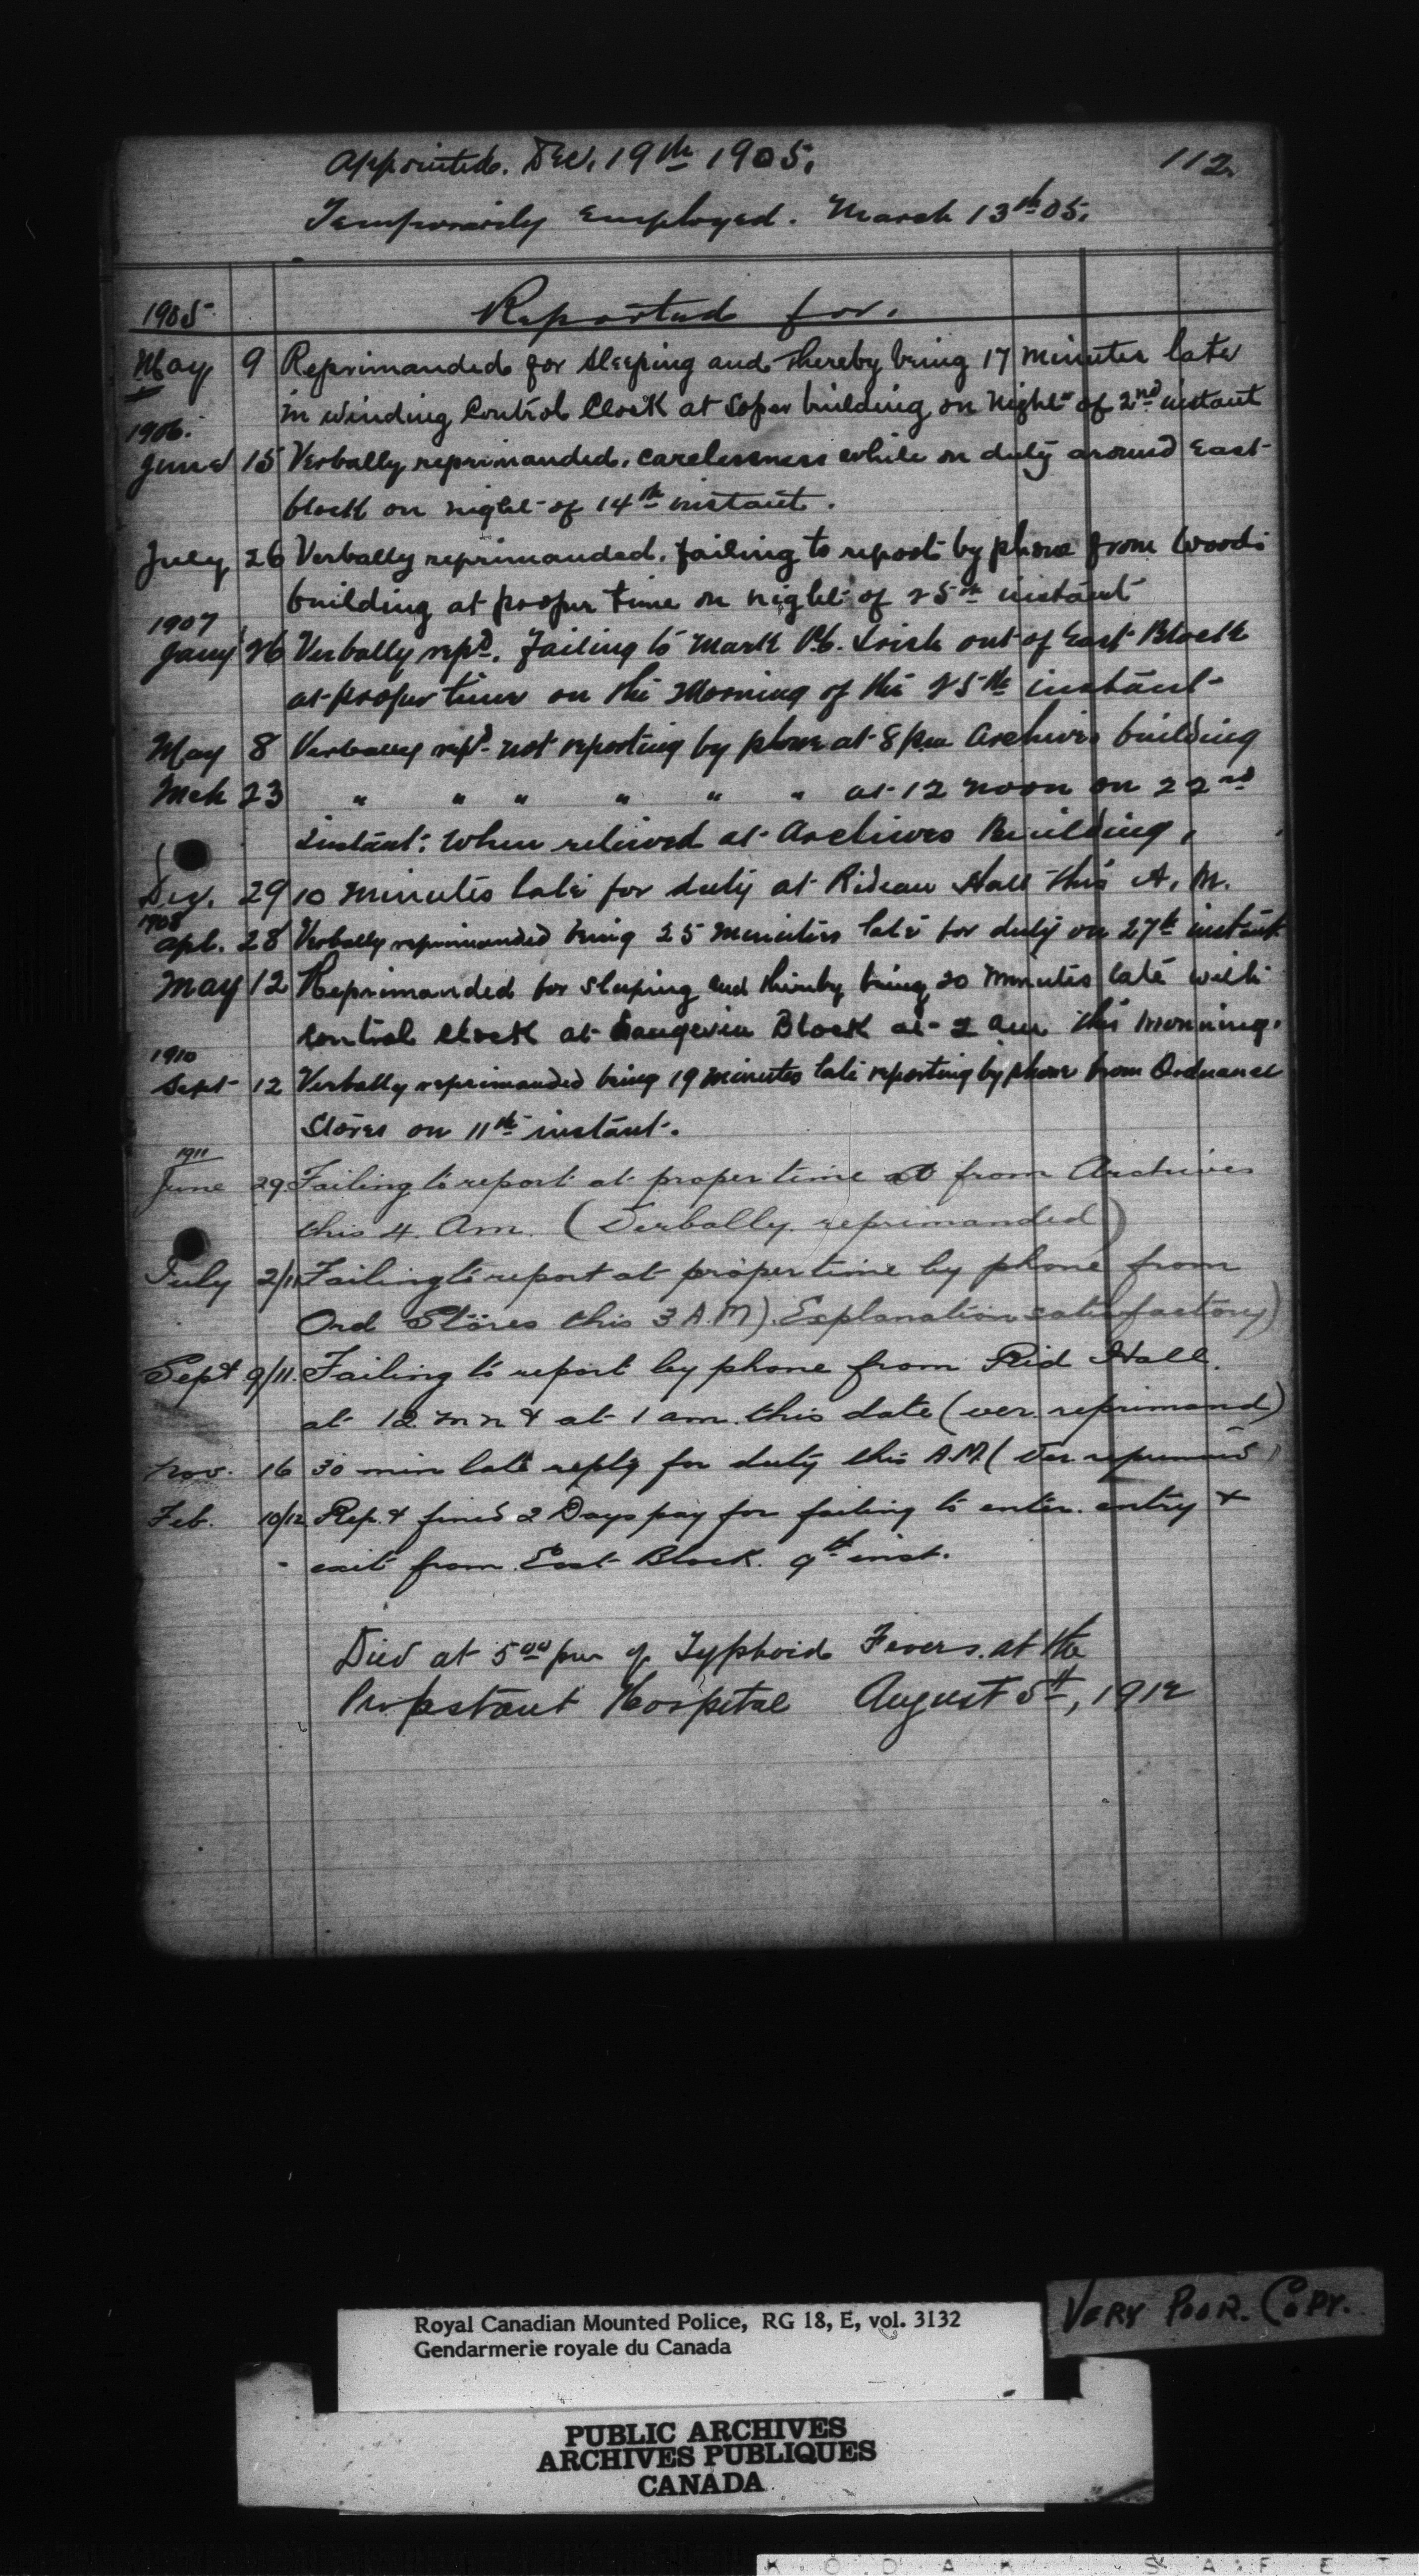 Appointed. Dec. 19th 1905.
112
Temporarily Employed. March 13th 05.
1905
Reported for.
May 9 Reprimanded for sleeping and thereby being 17 minutes late
in winding Control Clock at Soper building on night of 2nd instant
1906.
June 15 Verbally reprimanded, carelessness while on duty around East
block on night of 14th instant.
July 26 Verbally reprimanded, failing to report by phone from Woods
building at proper time on night of 25th instant
1907
Jany 26 Verbally repd. Failing to mark P.C. Irish out of East Block
at proper time on the morning of the 25th instant
May 8 Verbally repd not reporting by phone at 8 pm Archives building
Mch 23 " " " " " " at 12 noon on 22nd
instant: when relieved at Archives Building.
Dec. 29 10 minutes late for duty at Rideau Hall this A.M.
1908
Apl. 28 Verbally reprimanded being 25 minutes late for duty on 27th instant
May 12 Reprimanded for sleeping and thereby being 20 minutes late with
control clock at Langevin Block at 2 am this morning.
1910
Sept 12 Verbally reprimanded being 19 minutes late reporting by phone from Ordnance
Stores on 11th instant.
1911
June 29. Failing to report at proper time from Archives
this 4. Am. (Verbally. reprimanded)
July 2/11 Failing to report at proper time by phone from
Ord Stores this 3 A.M). Explanation satisfactory)
Sept 9/11. Failing to report by phone from Rid Hall.
at 12 mn & at 1 am this date (ver. reprimand)
Nov. 16 30 min late reptg for duty this A.M. (Ver. reprimand)
Feb. 10/12 Rep. & fined 2 Days pay for failing to enter entry &
exit from East Block. 9th inst.
Died at 5 00 pm of Typhoid Fevers. at the
Hospital August 5th, 1912
VERY POOR. COPY.
Royal Canadian Mounted Police, RG 18, E, vol. 3132
Gendarmerie royale du Canada
PUBLIC ARCHIVES
ARCHIVES PUBLIQUES
CANADA
K O D A K S A F E T